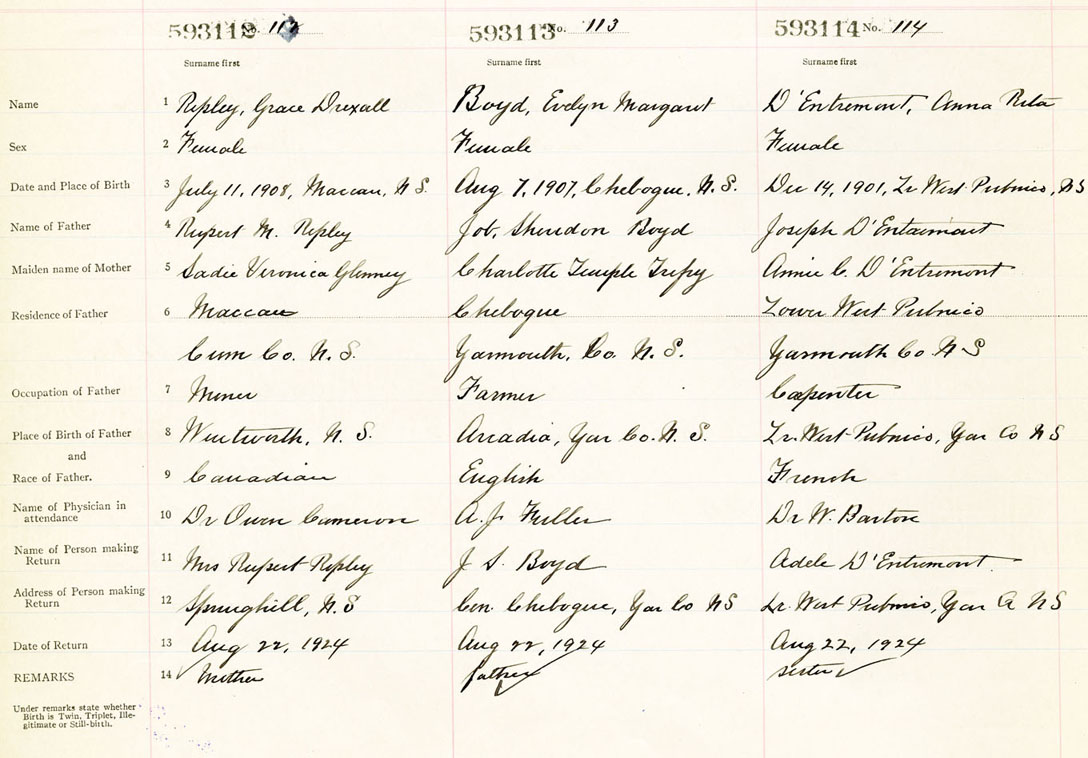 593112 No. 112 593113 No. 113 593114 No. 114
Surname first Surname first Surname first
Name 1 Ripley, Grace Drexall Boyd, Evelyn Margaret D'Entremont, Anna Rita
Sex 2 Female Female Female
Date and Place of Birth 3 July 11, 1908, Maccan, N S. Aug 7, 1907, Chebogue, N. S. Dec 14, 1901, Lr West Pubnico, NS
Name of Father 4 Rupert M. Ripley Job, Shendon Boyd Joseph D'Entremont
Maiden name of Mother 5 Sadie Veronica Glenney Charlotte Temple Trefry Annie C. D'Entremont
Residence of Father 6 Maccan Chebogue Lower West Pubnico
Cum Co. N. S. Yarmouth, Co. N. S. Yarmouth Co N S
Occupation of Father 7 Miner Farmer Carpenter
Place of Birth of Father 8 Wentworth, N. S. Arcadia, Yar Co. N. S. Lr. West Pubnico, Yar Co N S
and
Race of Father. 9 Canadian English French
Name of Physician in attendance 10 Dr Owen Cameron A. J. Fuller Dr W. Barton
Name of Person making Return 11 Mrs Rupert Ripley J S. Boyd Adele D'Entremont.
Address of Person making Return 12 Springhill, N. S Cen. Chebogue, Yar Co NS Lr. West Pubnico, Yar Co NS
Date of Return 13 Aug 22, 1924 Aug 22, 1924 Aug 22, 1924
REMARKS 14 Mother father sister
Under remarks state whether
Birth is Twin, Triplet, Ille-
gitimate or Still-birth.